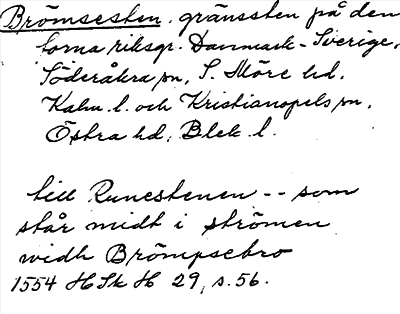 Brömsesten, gränssten på den
forna riksgr. Danmark-Sverige,
Söderåkra sn, S. Möre hd,
Kalm. l. och Kristianopels sn,
Östra hd, Blek. l.
till Runestenen -- som
står midt i strömen
widh Brömpsebro
1554 HSk H 29, s. 56.